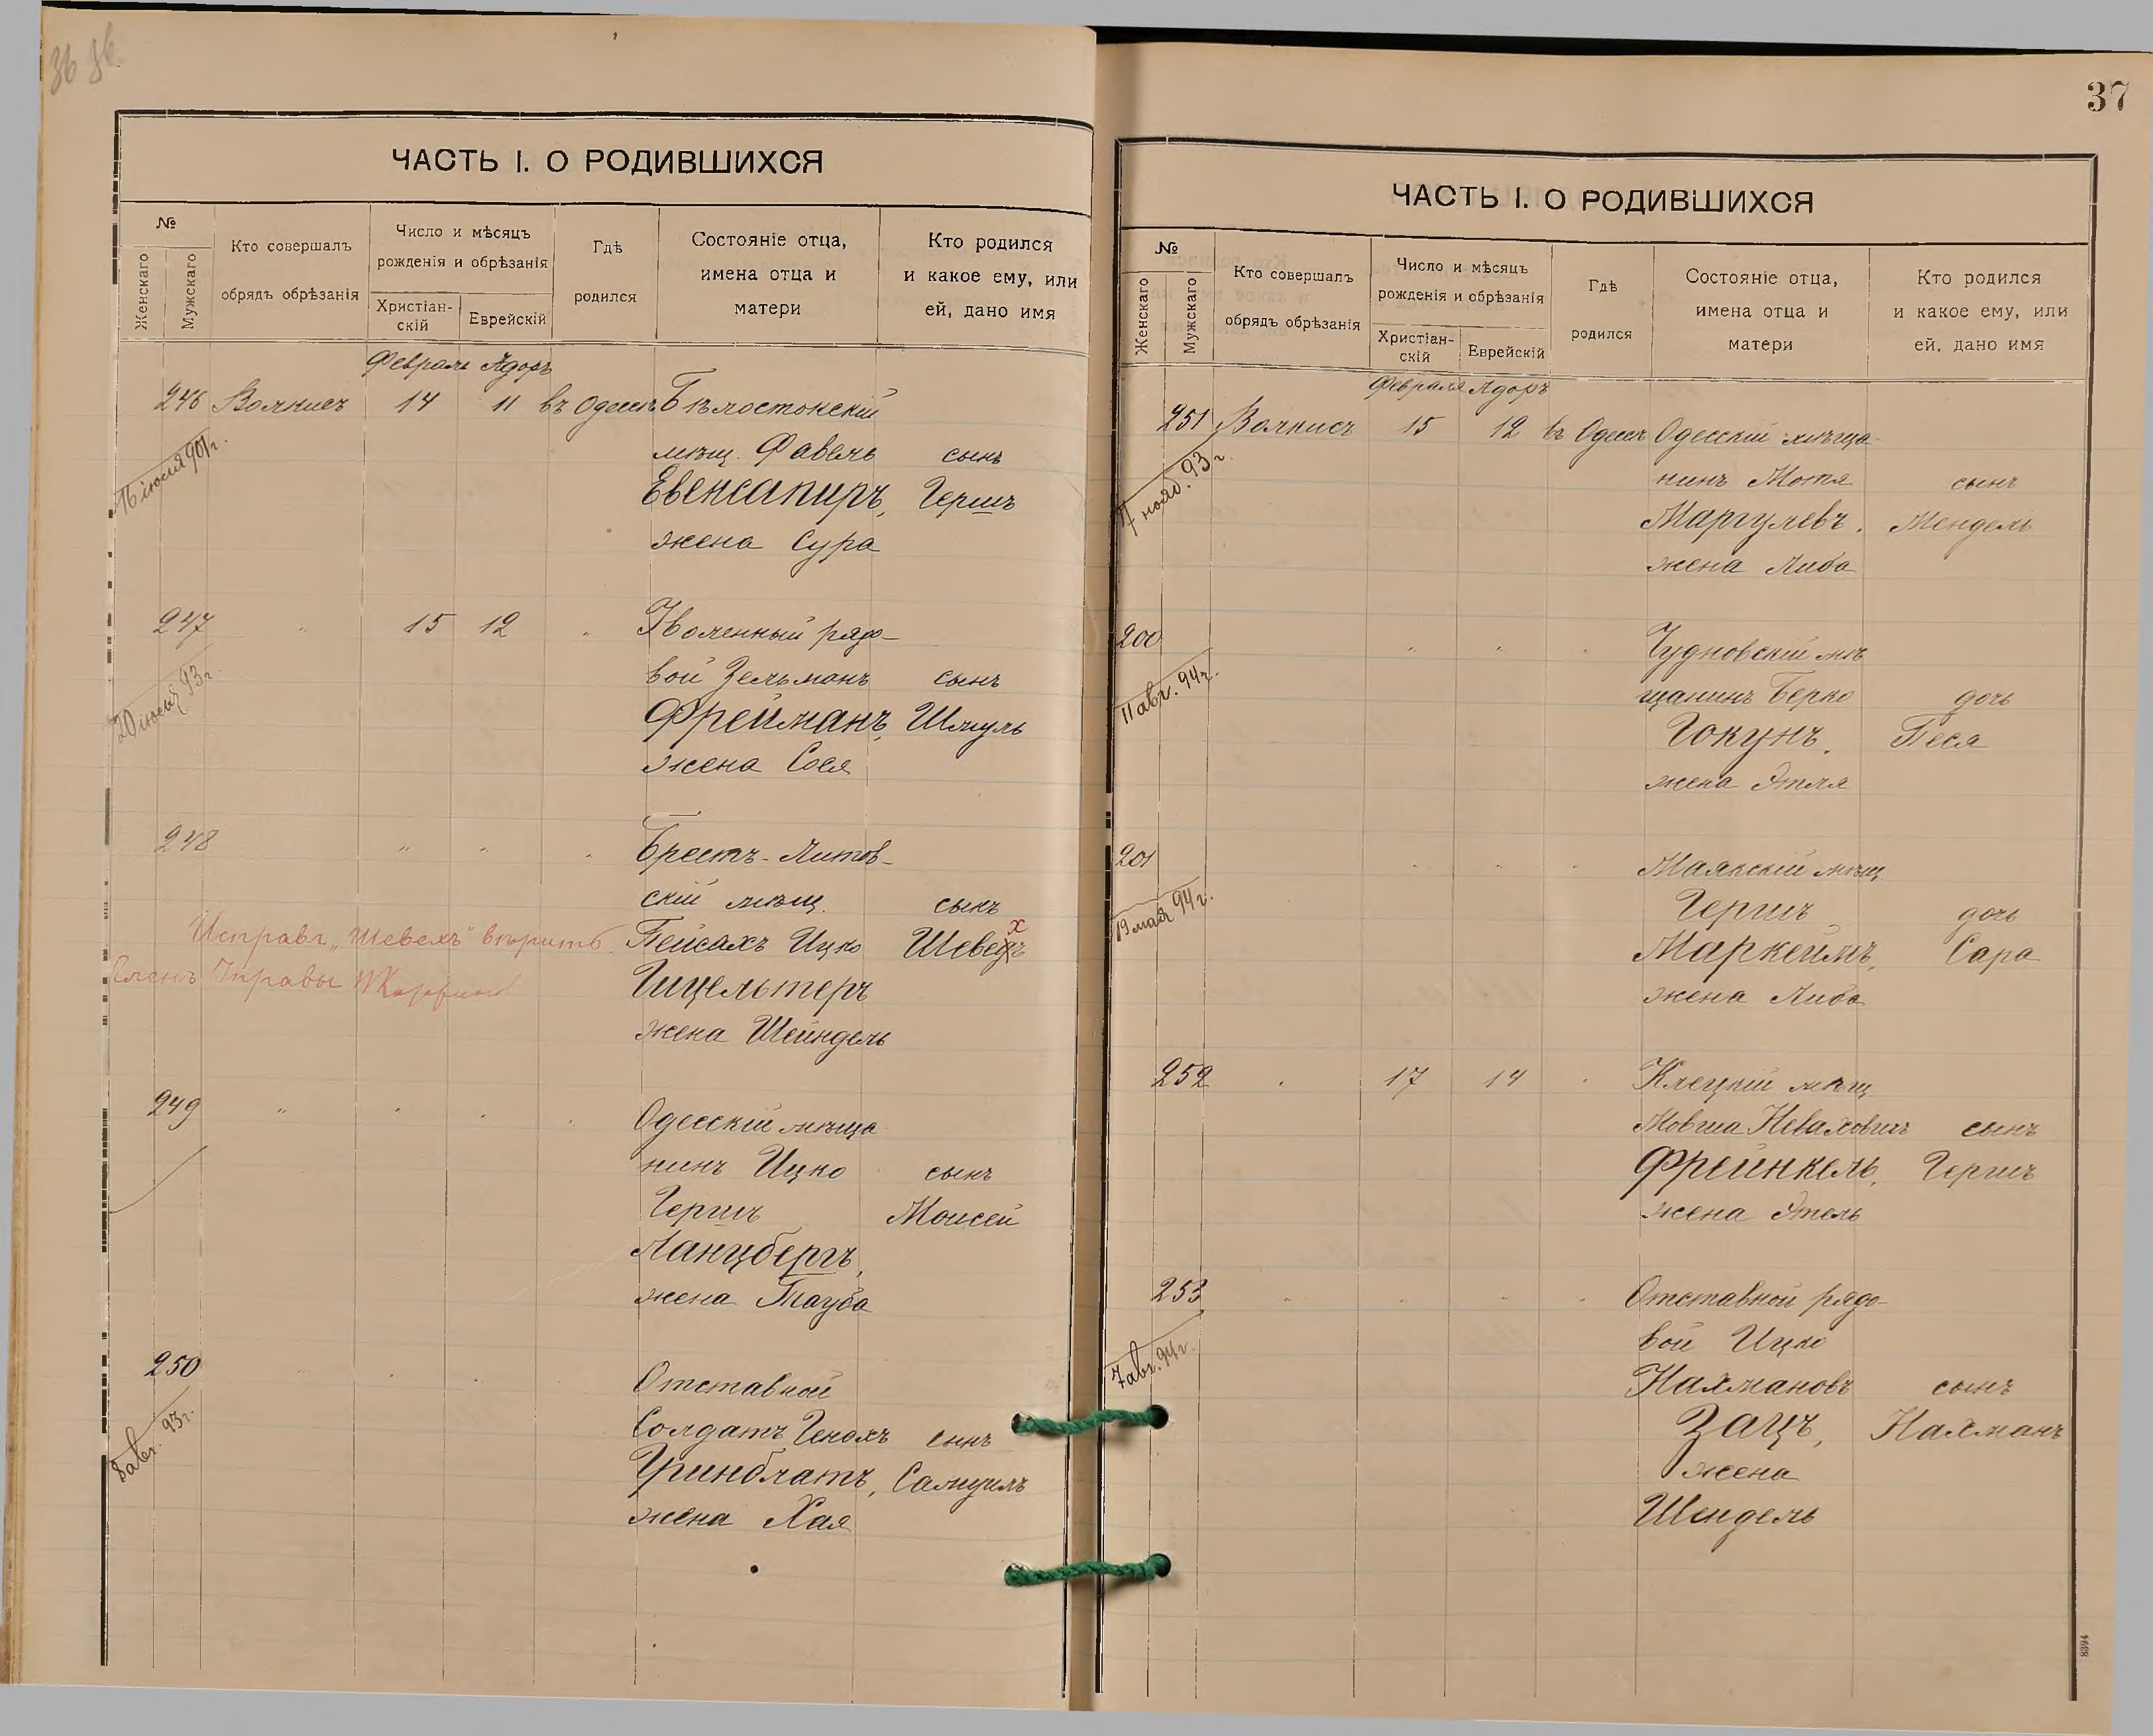 36
ЧАСТЬ I. О РОДИВШИХСЯ
№
Женскаго
Мужскаго
Кто совершалъ
обрядъ обрѣзанія
Число и мѣсяцъ
рожденія и обрѣзанія
Христіан-
скій
Еврейскій
Гдѣ
родился
Состояніе отца,
имена отца и
матери
Кто родился
и какое ему, или
ей, дано имя
Февраль Адоръ
246 14 11 въ Одессѣ Бѣлостокскій
16 іюля 901 г.
мѣщ. Фавель сынъ
Евенсапиръ, Гершъ
жена Сура
247 " 15 12 " Уволенный рядо-
20 іюля 93 г.
вой Зельманъ сынъ
Фрейманъ, Шмуль
жена Сося
248 " " " Брестъ-Литов-
скій мѣщ. сынъ
Исправл. „Шевехъ" вѣрить Пейсахъ Ицко Шевехъ
Членъ Управы Гицельтеръ
жена Шейндель
249 " " " " Одесскій мѣща-
нинъ Ицко сынъ
Гершъ Моисей
Ланцбергъ,
жена Тауба
250 " " " Отставной
8 авг. 93 г.
Солдатъ Генохъ сынъ
Гринблатъ, Самуилъ
жена Хая
37
ЧАСТЬ I. О РОДИВШИХСЯ
№
Женскаго
Мужскаго
Кто совершалъ
обрядъ обрѣзанія
Число и мѣсяцъ
рожденія и обрѣзанія
Христіан-
скій
Еврейскій
Гдѣ
родился
Состояніе отца,
имена отца и
матери
Кто родился
и какое ему, или
ей, дано имя
Февраля Адоръ
251 15 12 въ Одессѣ Одесскій мѣща-
нояб. 93 г.
нинъ Мотя сынъ
Маргулевъ, Мендель
жена Либа
200 " " " Чудновскій мѣ
11 авг. 94 г.
щанинъ Берко дочь
Гокунъ, Песя
жена Этля
201 " " " Маякскій мѣщ
19 мая 94 г.
Гершъ дочь
Маркеймъ, Сара
жена Либа
252 " 17 14 " Клецкій мѣщ
Мовша Неваховичъ сынъ
Фрейнкель, Гершъ
жена Этель
253 " " " " Отставной рядо-
7 авг. 94 г.
вой Ицко
Нахмановъ сынъ
Зацъ, Нахманъ
жена
Шендель
8394